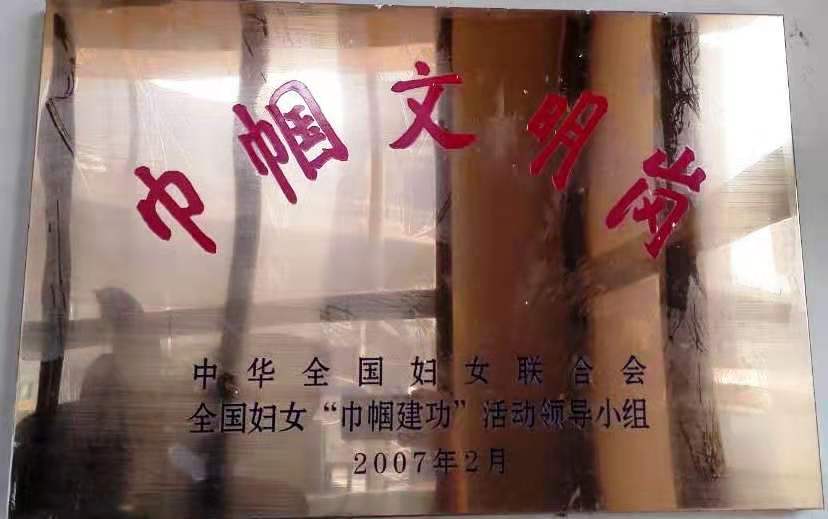 巾帼文明岗
中华全国妇女联合会
全国妇女“巾帼建功”活动领导小组
2007年2月